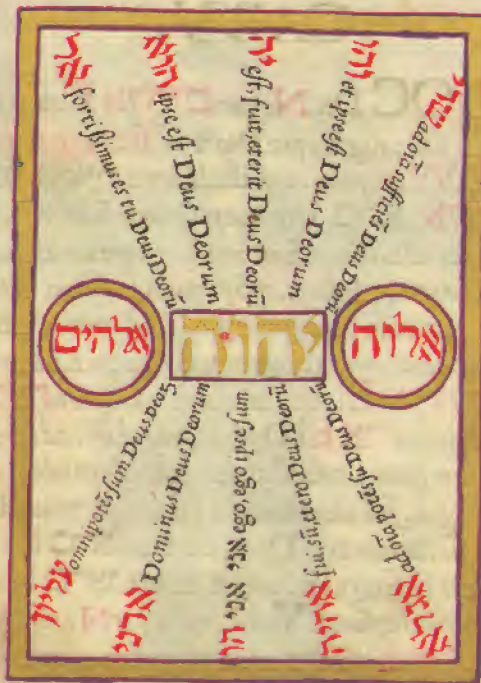 אל fortißimus es tu Deus Deorũ
הוא ipse est Deus Deorum
יה est, fuit, et erit Deus Deorũ
והו et ipse est Deus Deorum
שדי ad oīa sufficiēs Deus Deorũ
אלהים
יהוה
אלוה
עליון omnipotēs sum Deus Deoꝝ
אדני Dominus Deus Deorum
אני אני הו ego, ego ipse sum
אהיה fui, sũ, et ero Deus Deorũ
אגלא ad oīa potēs sũ Deus Deorũ